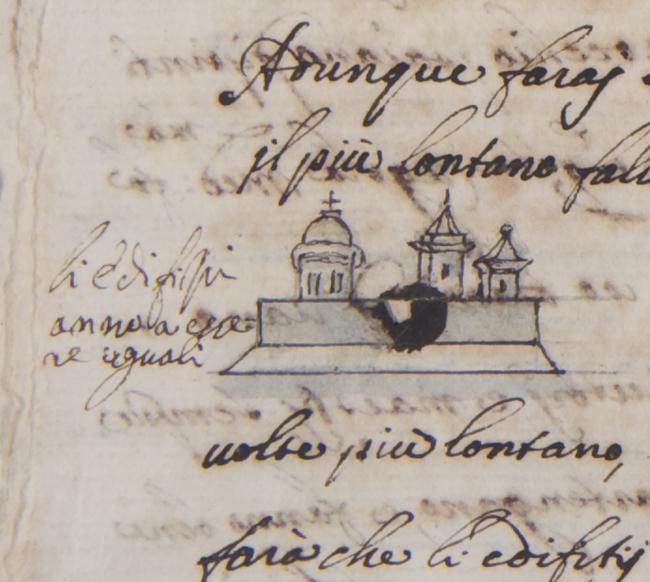 Adunque faraj
il più lontano falu
li edifitij
anno a esse
re eguali
uolte più lontano,
farà che li edifitij